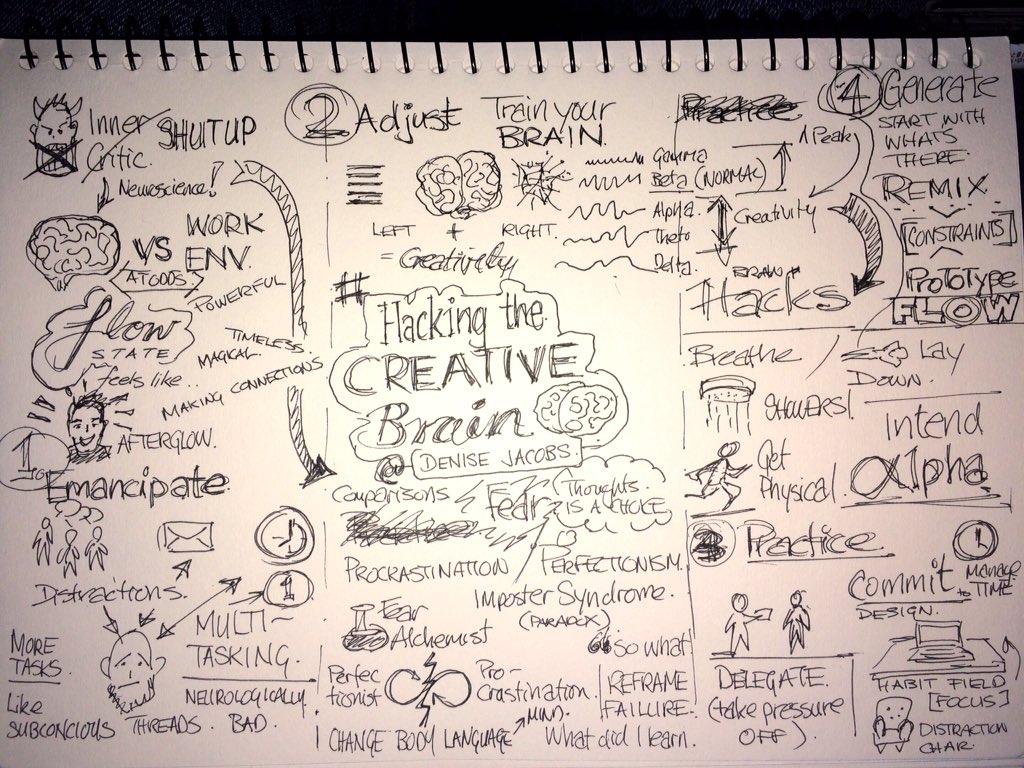 Inner
Critic.
SHUT UP
Neuroscience!
VS
WORK
ENV.
AT ODDS
flow
STATE
feels like..
POWERFUL
TIMELESS
MAGICAL.
MAKING CONNECTIONS
AFTERGLOW.
1
Emancipate
Distractions.
1
MULTI-
TASKING.
NEUROLOGICALLY
BAD.
MORE
TASKS.
Like
SUBCONCIOUS
THREADS.
2 Adjust
Train your
BRAIN.
LEFT + RIGHT.
= Creativity
Gamma
Beta (NORMAL)
Alpha.
Theta
Delta.
Peak
Creativity
#
Hacking the
CREATIVE
Brain
@DENISE JACOBS.
Comparisons
Fear
Thoughts.
IS A CHOICE
PROCRASTINATION / PERFECTIONISM.
Imposter Syndrome.
(PARADOX)
Fear
Alchemist
Perfec
tionist
Pro-
crastination.
CHANGE BODY LANGUAGE
MIND.
So what
REFRAME
FAILURE.
What did I learn.
4 Generate
START WITH
WHATS
THERE.
REMIX.
[CONSTRAINTS]
PROTOTYPE
FLOW
BRAIN
Hacks
Breathe
Lay
Down.
SHOWERS!
Get
Physical.
Intend
alpha
3 Practice.
Commit to
MANAGE
TIME
DESIGN.
DELEGATE.
(take pressure
OFF).
HABIT FIELD
[FOCUS]
DISTRACTION
CHAIR.